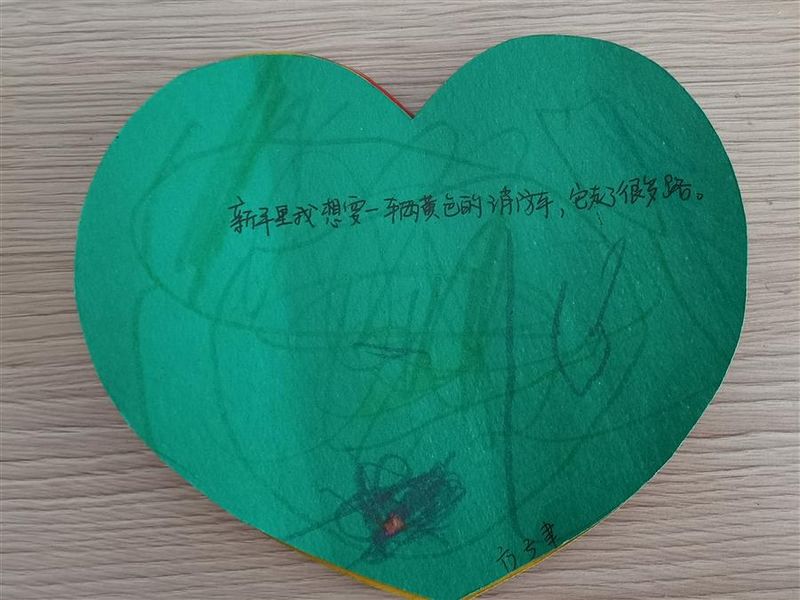 新年里我想要一辆黄色的消防车，它走了很多路。